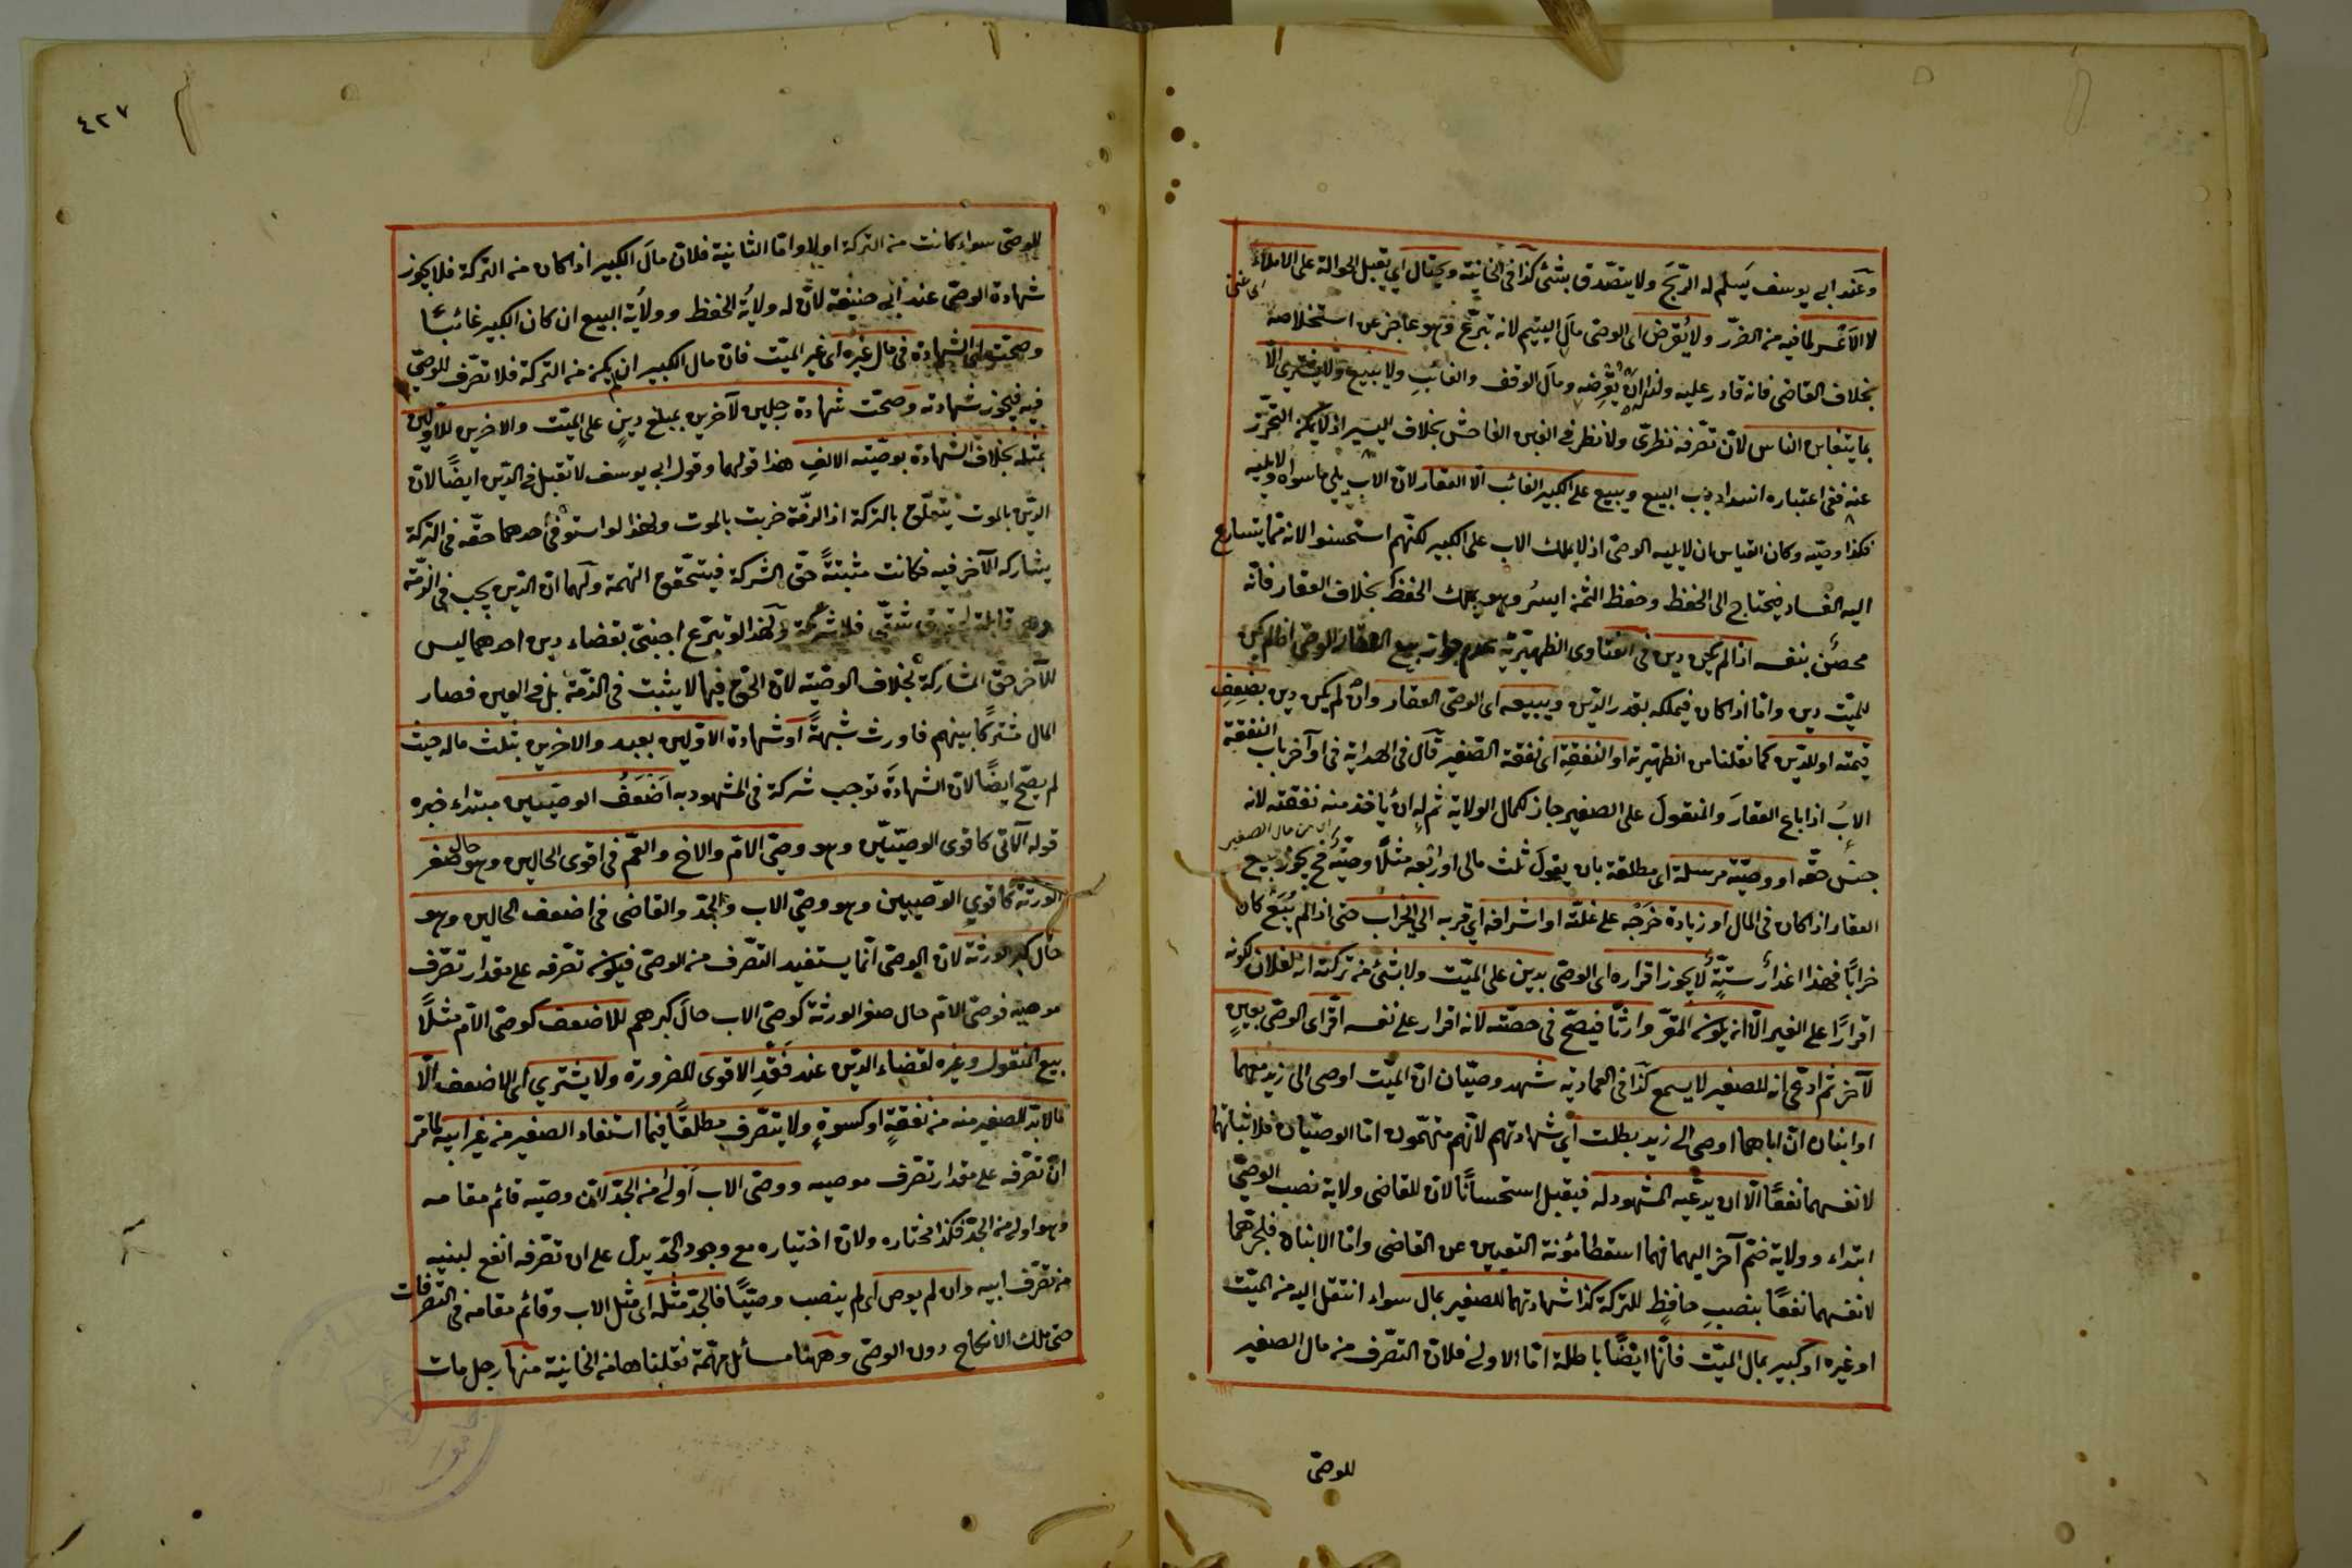 وعند ابي يوسف يسلم له الربح ولا يتصدق بشئ كذا في الخانية ويحتال اي يقبل الحوالة على الاملاء
اي اغنى
لا الاعسر لما فيه من الضرر ولا يقرض اى الوصى مال اليتيم لانه تبرع وهو عاجز عن استخلاصه
بخلاف القاضى فانه قادر عليه ولهذا ان يقرضه ومال الوقف والغائب ولا يبيع ولا يشترى الا
بما يتغابن الناس لان تصرفه نظرى ولا نظر فى الغبن الفاحش بخلاف اليسير اذ لا يمكن التحرز
عنه ففى اعتباره انسداد باب البيع ويبيع على الكبير الغائب الا العقار لان الاب يلى ما سواه ولا يليه
فكذا وصيه وكان القياس ان لا يليه الوصى اذ لا يملك الاب على الكبير لكنهم استحسنوا لانه مما يتسارع
اليه الفساد فيحتاج الى الحفظ وحفظ الثمن ايسر وهو يملك الحفظ بخلاف العقار فانه
محصن بنفسه اذا لم يكن دين فى الفتاوى الظهيرية عدم جواز بيع العقار للوصى اذا لم يكن
للميت دين واما اذا كان فيملكه بقدر الدين ويبيعه اى الوصى العقار وان لم يكن دين بضعف
قيمته او للدين كما نقلنا من الظهيرية او النفقة اى نفقة الصغير قال فى الهداية فى اواخر باب النفقة
الاب اذا باع العقار والمنقول على الصغير جاز لكمال الولاية ثم له ان يأخذ منه نفقته لانه
اى من مال الصغير
جنس حقه او وصية مرسلة اى مطلقة بان يقول ثلث مالى او ربعه مثلا وصية فح يجوز بيع
العقار اذا كان فى المال او زيادة خرجه على غلته او اشرافه اى قربه الى الخراب حتى اذا لم يبع كان
خرابا فهذا اعذار ستة لا يجوز اقراره اى الوصى بدين على الميت ولا بشئ من تركته انه لفلان لكونه
اقرارا على الغير الا انه يكون المقر وارثا فيصح فى حصته لانه اقرار على نفسه اقر اى الوصى بعين
لآخر ثم ادعى انه للصغير لا يسمع كذا فى العمادية شهد وصيان ان الميت اوصى الى زيد معهما
او ابنان ان اباهما اوصى الى زيد بطلت اي شهادتهم لانهم متهمون اما الوصيان فلاثباتهما
لانفسهما نفعا الا ان يدعيه المشهود له فيقبل استحسانا لان للقاضى ولاية نصب الوصى
ابتداء وولاية ضم آخر اليهما فهما اسقطا مؤنة التعيين عن القاضى واما الابنان فلجرهما
لانفسهما نفعا بنصب حافظ للتركة كذا شهادتهما للصغير بمال سواء انتقل اليه من الميت
او غيره او كبير بمال الميت فانها ايضا باطلة اما الاولى فلان التصرف من مال الصغير
للوصى
٤٢٧
للوصى سواء كانت من التركة اولا واما الثانية فلان مال الكبير اذا كان من التركة فلا يجوز
شهادة الوصى عند ابى حنيفة لان له ولاية الحفظ وولاية البيع ان كان الكبير غائبا
وصحت اى الشهادة فى مال غيره اى غير الميت فان مال الكبير ان لم يكن من التركة فلا تصرف للوصى
فيه فيجوز شهادته وصحت شهادة رجلين لآخرين بمبلغ دين على الميت والاخرين للاولين
بمثله بخلاف الشهادة بوصية الالف هذا قولهما وقول ابى يوسف لا تقبل فى الدين ايضا لان
الدين بالموت يتعلق بالتركة اذ الذمة خربت بالموت ولهذا لو استوفى احدهما حقه فى التركة
يشاركه الآخر فيه فكانت مثبتة حق الشركة فيتحقق التهمة ولهما ان الدين يجب فى الذمة
وهى قابلة لحقوق شتى فلا شركة ولهذا لو تبرع اجنبى بقضاء دين احدهما ليس
للآخر حق المشاركة بخلاف الوصية لان الحق فيها لا يثبت فى الذمة بل فى العين فصار
المال مشتركا بينهم فاورث شبهة او شهادة الاولين بعبد والاخرين بثلث ماله حيث
لم يصح ايضا لان الشهادة توجب شركة فى المشهود به اضعف الوصيين مبتداء خبره
قوله الآتى كاقوى الوصيين وهو وصى الام والاخ والعم فى اقوى الحالين وهو حال صغر
الورثة كاقوى الوصيين وهو وصى الاب والجد والقاضى فى اضعف الحالين وهو
حال كبر الورثة لان الوصى انما يستفيد التصرف من الموصى فيكون تصرفه على مقدار تصرف
موصيه فوصى الام حال صغر الورثة كوصى الاب حال كبرهم للاضعف كوصى الام مثلا
بيع المنقول وغيره لقضاء الدين عند فقد الاقوى للضرورة ولا يشترى اى الاضعف الا
ما لا بد للصغير منه من نفقة او كسوة ولا يتصرف مطلقا فيما استفاد الصغير من غير ابيه لما مر
ان تصرفه على مقدار تصرف موصيه ووصى الاب اولى من الجد لان وصيه قائم مقامه
وهو اولى من الجد فكذا مختاره ولان اختياره مع وجود الجد يدل على ان تصرفه انفع لبنيه
من تصرف ابيه وان لم يوص اى لم ينصب وصيا فالجد مثله اى مثل الاب وقائم مقامه فى التصرفات
حتى يملك الانكاح دون الوصى وههنا مسائل مهمة نقلناها من الخانية منها رجل مات